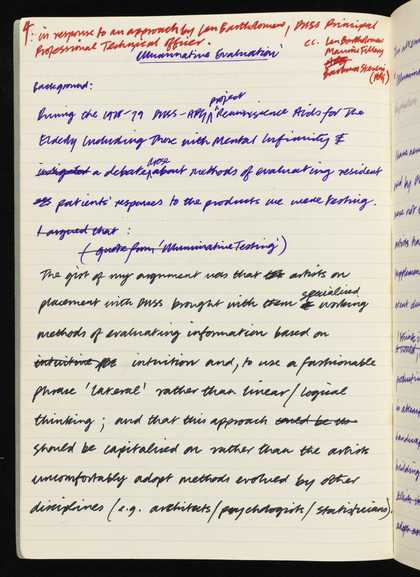 in response to an approach by Len Bartholomew, DHSS Principal
Professional Technical Officer.
cc. Len Bartholomew
'Illuminative Evaluation'
Background:
During the 1978-79 DHSS - project Reminiscence Aids for the
Elderly Including Those with Mental Infirmity I
a debate arose about methods of evaluating resident
patients' responses to the products we were testing.
I argued that:
(quote from 'Illuminative Testing')
The gist of my argument was that artists on
placement with DHSS brought with them specialised working
methods of evaluating information based on
intuitive intuition and, to use a fashionable
phrase 'lateral' rather than linear/logical
thinking; and that this approach could be
should be capitalised on rather than the artists
uncomfortably adopt methods evolved by other
disciplines (e.g. architects/psychologists/statisticians).